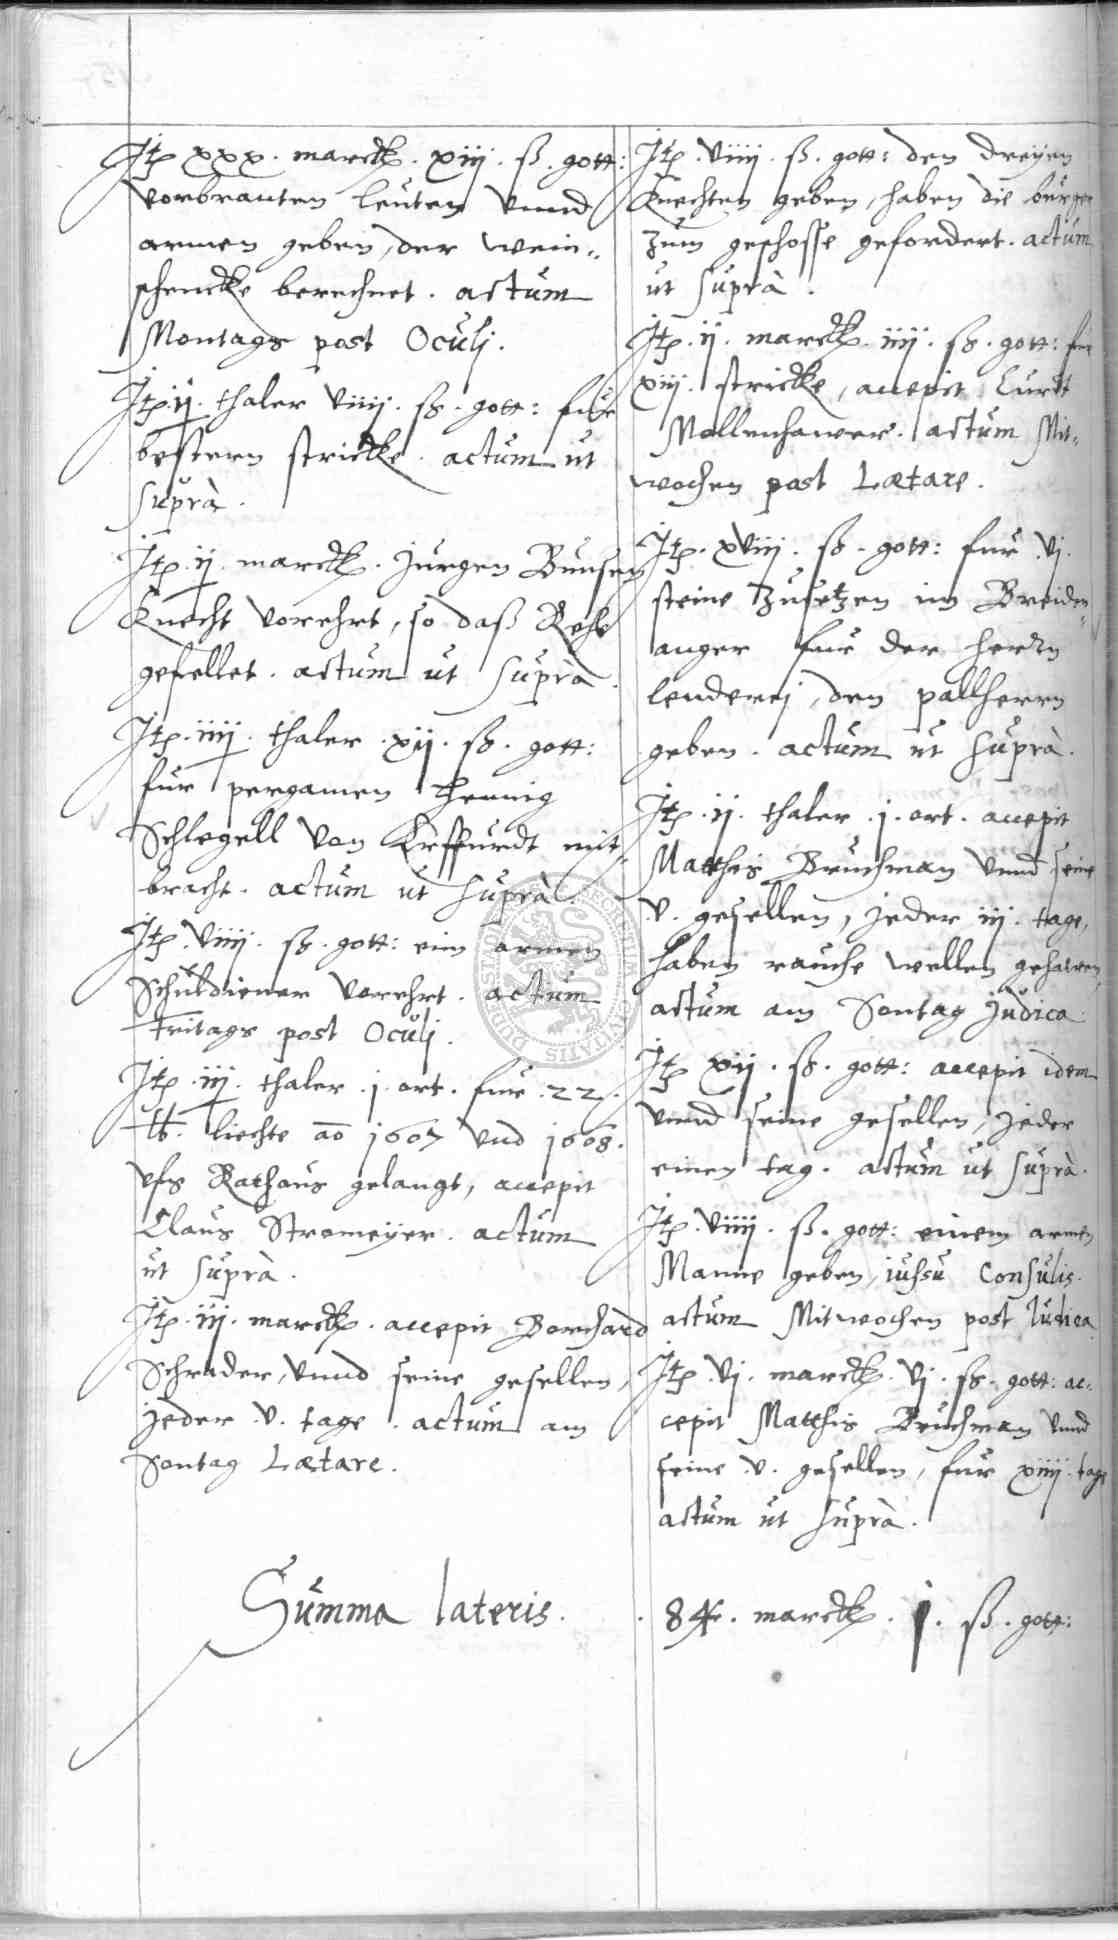 Jtp xxx. marck. xiij. ß. gott:
vorbranten leuten vnnd
armen geben, der wein„
schencke berechnet. actum
Montags post Oculj.
Jtp. ij. thaler viiij. ß. gott: fur
bestern stricke. actum ut
suprà.
Jtp. ij. marck. Jurgen Bunsen
Knecht vorehrt, so daß Rehe
gefellet. actum ut suprà.
Jtp. iiij. thaler. xij. ß. gott:
fur pergamen Hennig
Schlegell von Erffurdt mit„
bracht. actum ut suprà.
Jtp. viiij. ß. gott: eim armen
Schuldiener vorehrt. actum
Fritags post Oculj.
Jtp. iij. thaler. j. ort. fur. 22.
lb. liechte ao 1607 vnd 1608.
vfs Rathaus gelangt, accepit
Claus Stromeyer. actum
ut suprà.
Jtp. iij. marck. accepit Borchard
Schrader, vnnd seine gesellen,
jeder. v. tage. actum am
Sontag Lætare.
Jtp. viiij. ß. gott: den dreyen
Knechten geben, haben die burger
zum geschosse gefordert. actum
ut suprà.
Jtp. ij. marck. iiij. ß. gott: fur
xiij. stricke, accepit Curdt
Mollenhawer. actum Mit„
wochen post Lætare.
Jtp. xviij. ß. gott: fur vj.
steine zusetzen im Breiden„
anger fur der herrn
lenderej, den pallherrn
geben. actum ut suprà.
Jtp. ij. thaler. j. ort. accepit
Matthis Bruchman vnnd seine
v. gesellen, jeder iij. tage,
haben rauche wellen gehawen,
actum am Sontag Judica
Jtp xij. ß. gott: accepit idem
vnnd seine gesellen, jeder
einen tag. actum ut suprà.
Jtp. viiij. ß. gott: einem armen
Manne geben, iussu Consulis.
actum Mitwochen post Iudica
Jtp. vj. marck. vj. ß. gott: ac„
cepit Matthis Bruchman vnnd
seine. v. gesellen, fur xiiij. tage
actum ut suprà.
Summa lateris. . 84. marck. j. ß. gott: